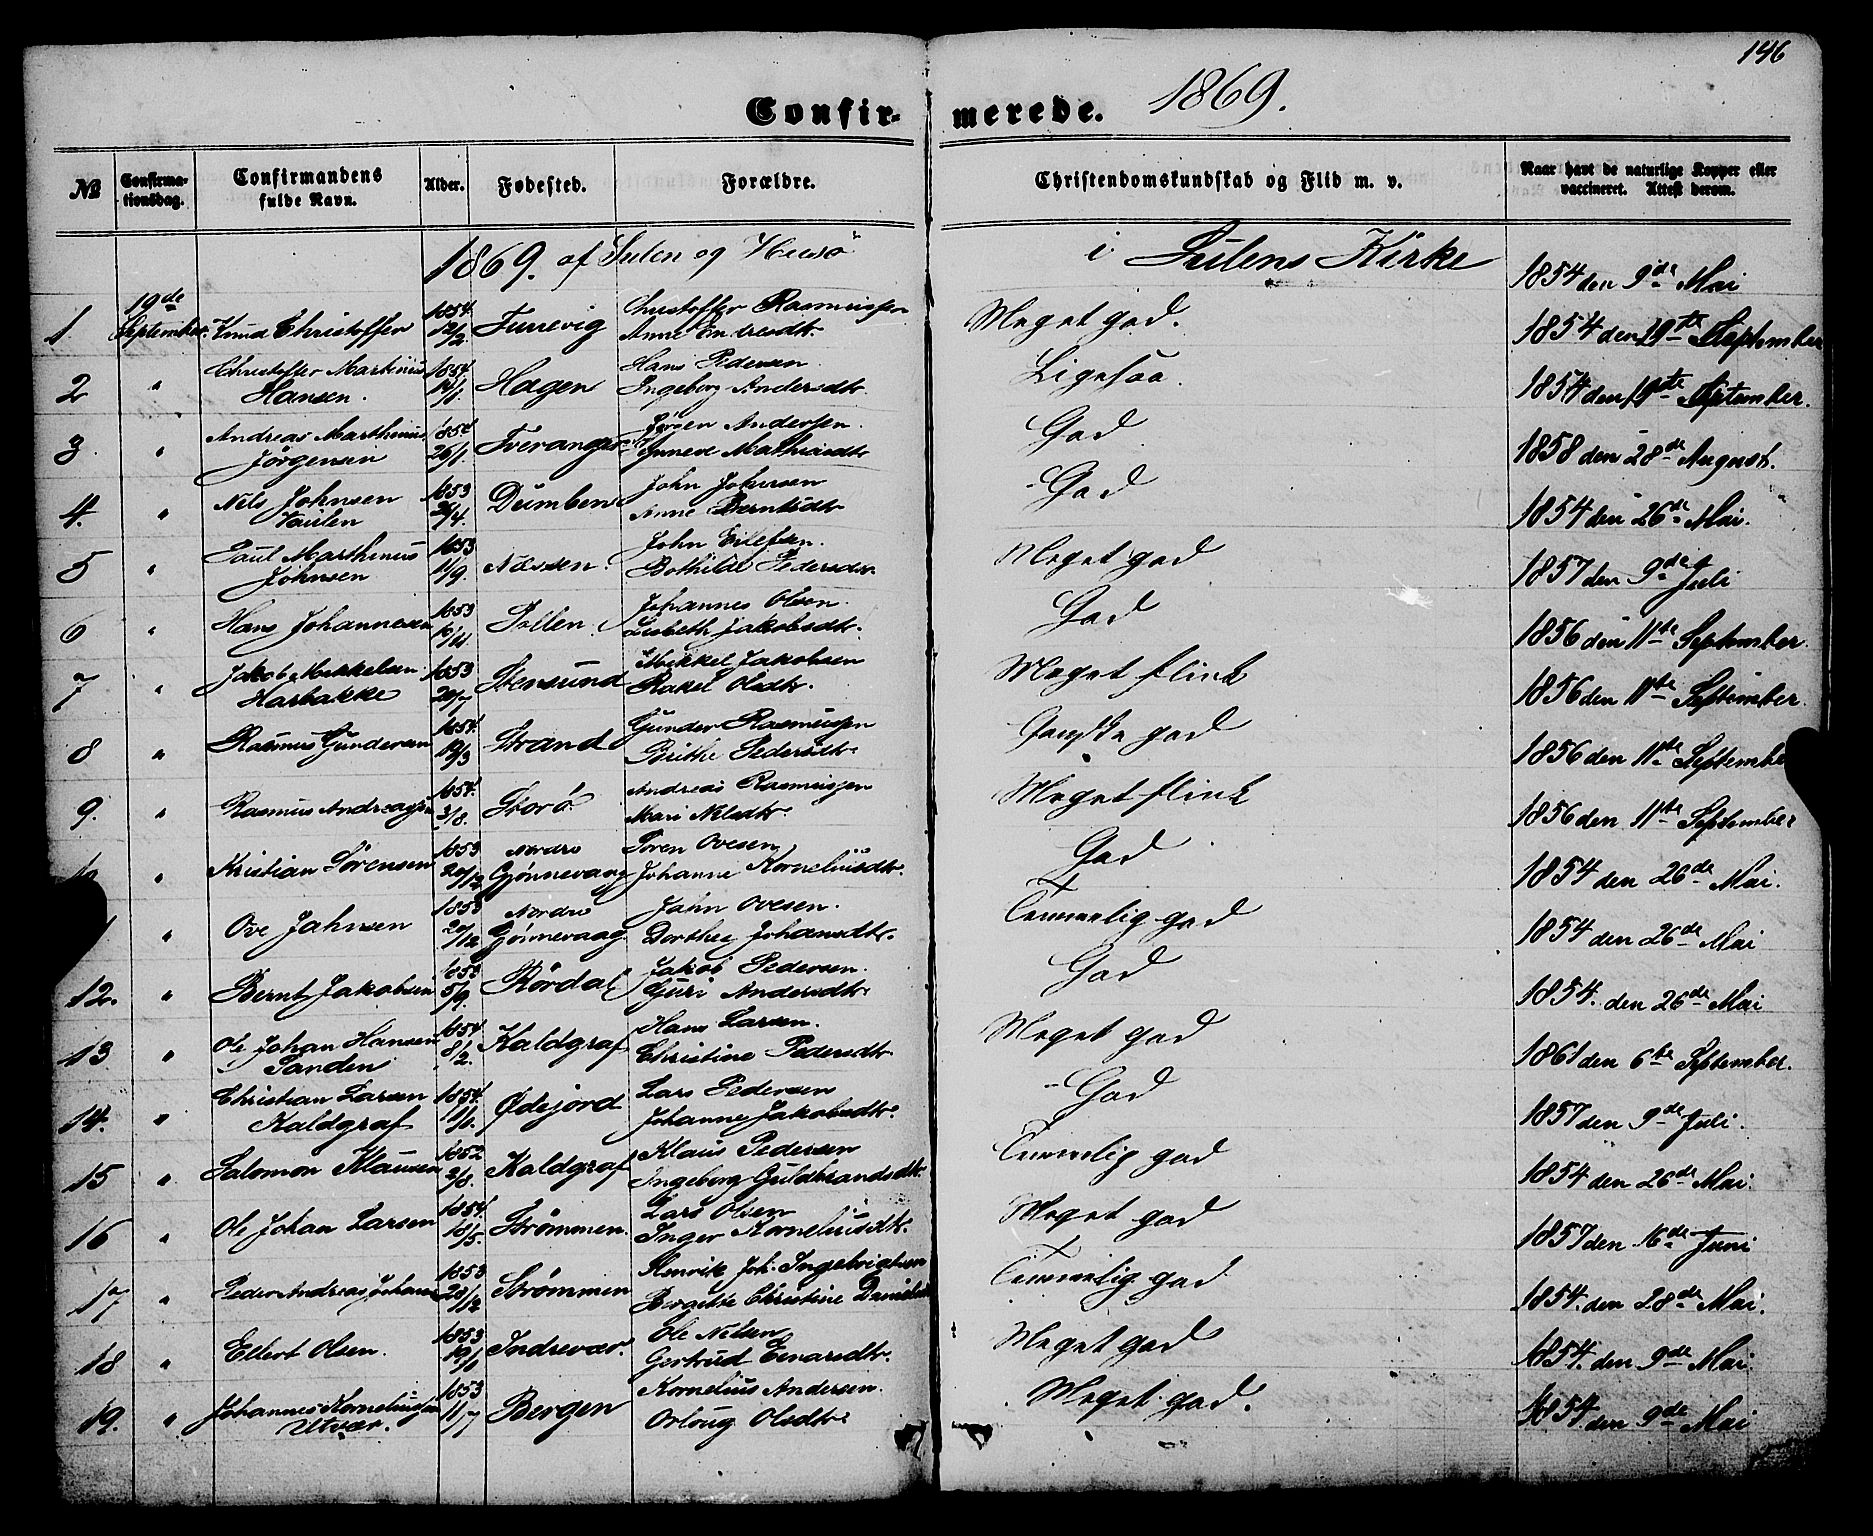 146
Confirmerede. 1869.
№ Confirmationsdag. Confirmandens fulde Navn. Alder. Fødested. Forældre. Christendomskundskab og Flid m. v. Naar havt de naturlige Kopper eller vaccineret. Attest derom.
1869. af Sulen og Husø i Sulens Kirke
1854 den 9de Mai
19de 1854. Christoffer Rasmussen
1 September Knud Christoffer 12/2 Anne Meget god.
1854 den 19de September
Christoffer Martinus 1854. Hans Pedersen
2 " Hansen. 14/1 Hagen Ingeborg Andersdtr. Ligesaa.
1854 den 19de September.
Andreas Marthinus 1854 Jörgen Andersen.
3 " Jörgensen 26/1. Tveranger Synneve Mathiasdtr God
1858 den 28de August.
Nils Johnsen 1853 John Johnsen
4. " 26/4. Dumben Anne Berntsdtr God
1854 den 26de Mai.
Paul Marthinus 1853 John Eilefsen.
5 " Johnsen 11/9. Nessen. Bothilde Pedersdtr Meget god
1857 den 9de Juli
1853 Johannes Olsen.
6 " Hans Johannesen 10/11 Pollen. Lisbeth Jakobsdtr. God
1856 den 11te September.
Jakob Mikkelsen 1853 Mikkel Jakobsen
7 " Harbakke 20/7 Stensund Rakel Olsdtr. Meget flink
1856 den 11te September.
1854. Gunder Rasmussen
8 " Rasmus Gundersen 19/3 Strand Brithe Pedersdtr Ganske god
1856 den 11te September
1854. Andreas Rasmussen
9. " Rasmus Andreassen 3/8. Storö Mari Nilsdtr. Meget flink
1856 den 11te September
1853 Nordre Sören Ovesen
" Kristian Sörensen 20/12 Gjönnevaag Johanne Korneliusdtr. God
1854 den 26de Mai.
1853 Nordre John Ovesen.
" Ove Johnsen 20/12 Gjönnevaag Dorthea Johansdtr. Temmelig god
1854 den 26de Mai
1853 Jakob Pedersen.
12. " Bernt Jakobsen 5/9. Rördal Guri Andersdtr. God
1854. den 26de Mai
Ole Johan Hansen 1854. Hans Larsen.
13 " Sanden 8/2. Kaldgraf Christine Pedersdtr Meget god
1861 den 6te September.
Christian Larsen 1854. Lars Pedersen
14. " Kaldgraf 11/1. Ødejord Johanne Jakobsdtr. God
1857 den 9de Juli.
1852 Klaus Pedersen
15 " Salomon Klausen 2/8. Kaldgraf Ingeborg Guldbrandsdtr. Temmelig god
1854 den 26de Mai.
1854. Lars Olsen
16 " Ole Johan Larsen 18/5. Strömmen. Inger Korneliusdtr. Meget god
1857 den 16de Juni
1853 Henrik Joh. Ingebrigtsen
17 " Peder Andreas Johan 28/12 Strömmen Birgitte Christine Temmelig god
1854. den 28de Mai.
1853 Ole Nilsen
18 " Ellert Olsen. 19/1 Indrevær. Gertrud Einarsdtr. Meget god
1854. den 9de Mai
Johannes Korneliussen 1853 Kornelius Andersen.
19. " Utvær. 11/7 Bergen Orloug Olsdtr. Meget god.
1854 den 9de Mai